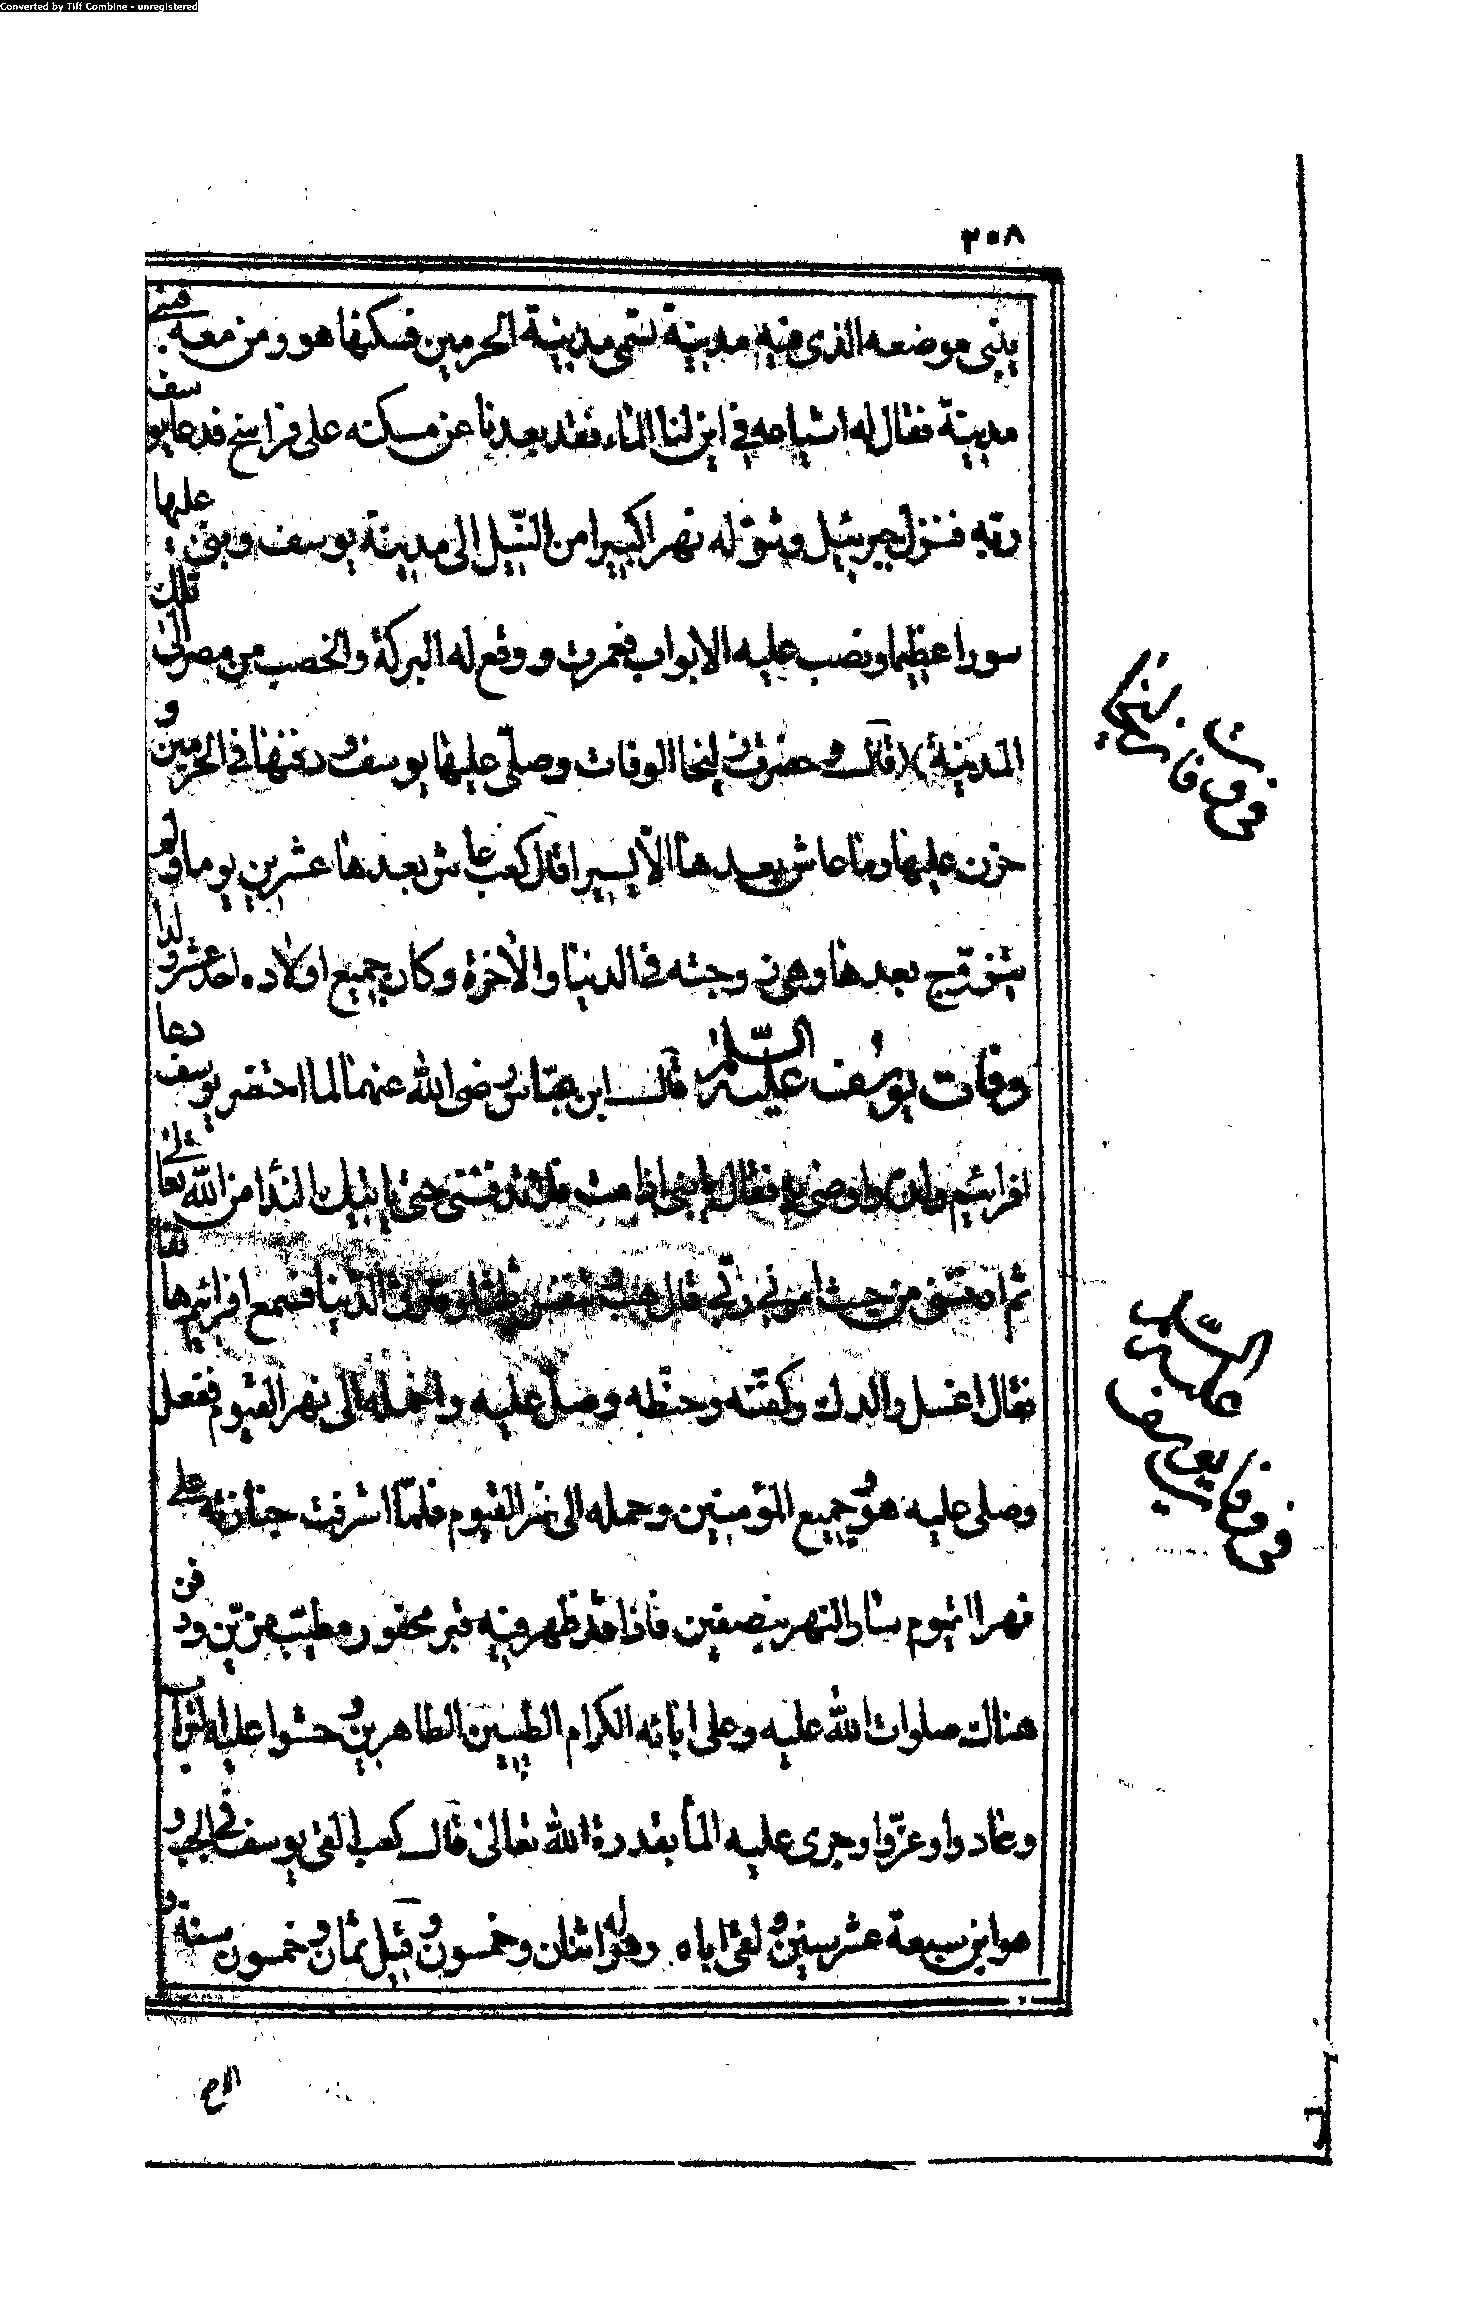 Converted by Tiff Combine - unregistered
٣٠٨
يبنى موضعه الذى فيه مدينة تسمى مدينة الحرمين فسكنها هو ومن معه فهى
مدينة فقال له اشياعه فى اين لنا الماء فقد بعدنا عن مسكنه على فراسخ فدعا يوسف
ربه فنزل جبرئيل وشق له نهرا كبيرا من النيل الى مدينة يوسف وبنى عليها
سورا عظيما ونصب عليه الابواب فعمرت ووقع له البركة والخصب من مصر الى تلك
المدينة قال وحضرت زليخا الوفات وصلى عليها يوسف ودفنها فى الحرمين و
حزن عليها وما عاش بعدها الا يسيرا قال كعب عاش بعدها عشرين يوما ولم
يتزوج بعدها وهى زوجته فى الدنيا والاخرة وكان جميع اولاده احد عشر ولدا
وفات يوسف عليه السلم قال ابن عباس رضى الله عنهما لما احتضر يوسف دعا
افرائيم ولده واوصى فقال يا بنى اذا مت فلا تدفننى حتى ياتيك الندا من الله تعالى
ثم ادفنى من حيث امرنى ربى قال الدنيا فسمع افرائيم هاتفا
يقال اغسل والدك وكفنه وحنطه وصل عليه واحمله الى نهر الفيوم ففعل
وصلى عليه هو وجميع المؤمنين وحمله الى نهر الفيوم فلما اشرفت جنازته على
نهر الفيوم سار النهر بنصفين فاذا قد ظهر فيه قبر محفور مطيب مزين ودفن
هناك صلوات الله عليه وعلى ابائه الكرام الطيبين الطاهرين وحشوا عليه التراب
وعادوا وعزوا وجرى عليه الماء بقدرة الله تعالى قال كعب القى يوسف فى الجب و
هو ابن سبعة عشر سنين ولقى اباه وهو له اثنان وخمسون وقيل ثمان وخمسون سنة و
فى وفات زليخا
فى وفات يوسف عليه السلام